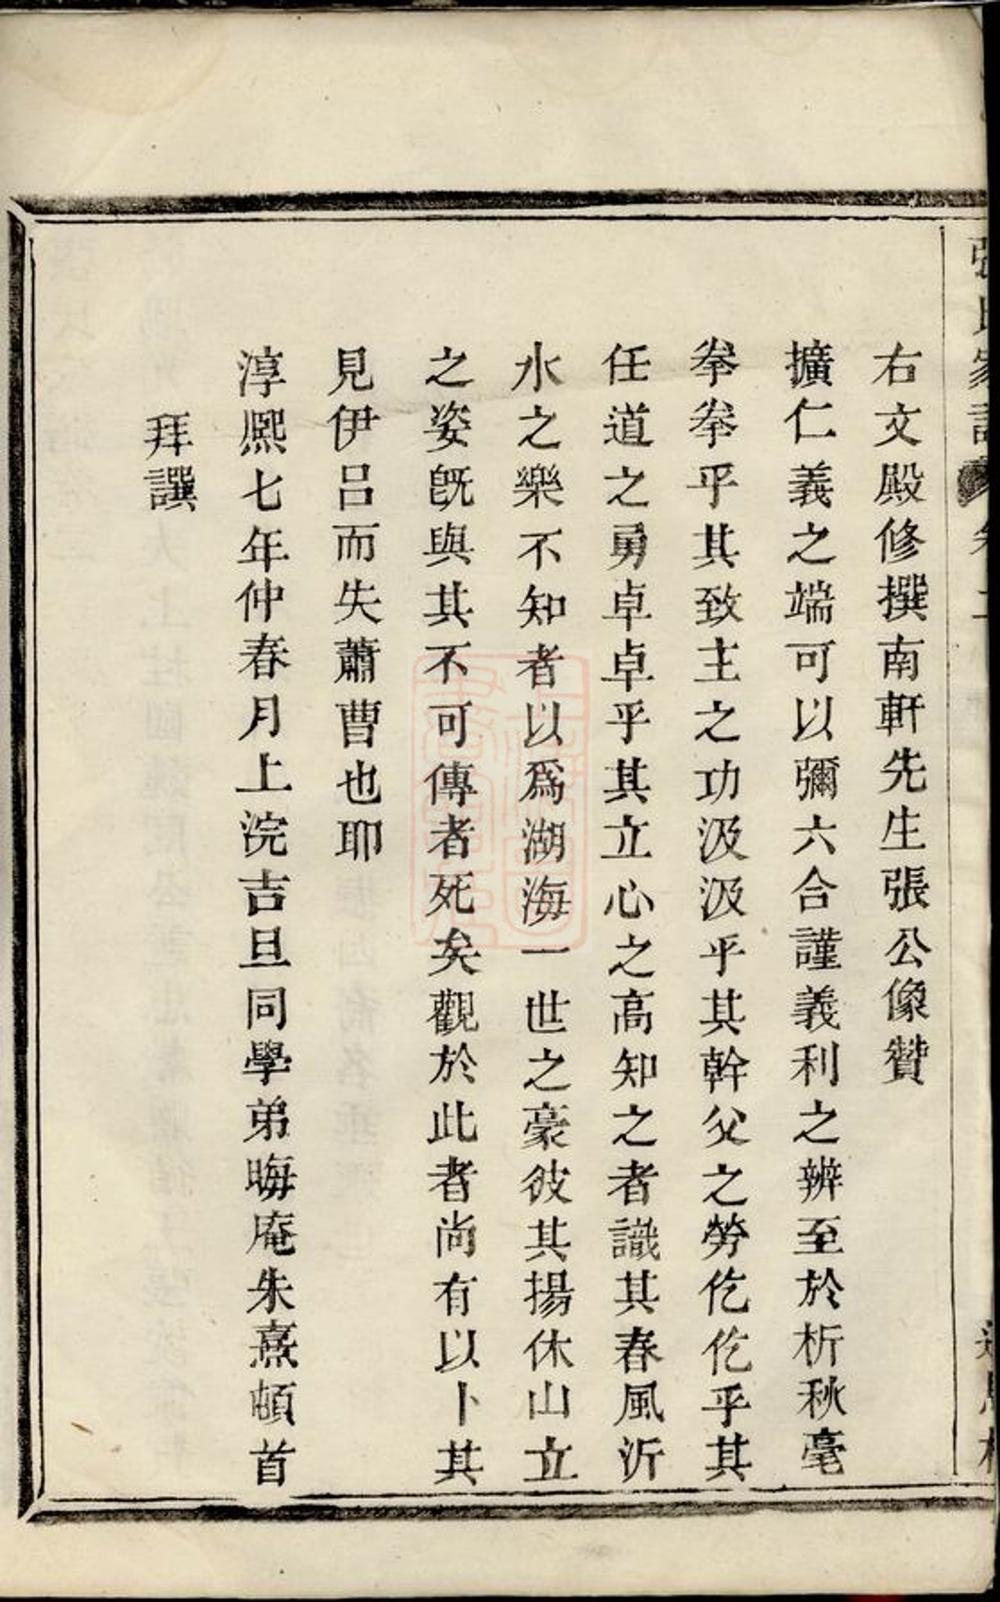 右文殿修撰南軒先生張公像贊
擴仁義之端可以彌六合謹義利之辨至於析秋毫
拳拳乎其致主之功汲汲乎其幹父之勞仡仡乎其
任道之勇卓卓乎其立心之高知之者識其春風沂
水之樂不知者以爲湖海一世之豪彼其揚休山立
之姿旣與其不可傳者死矣觀於此者尚有以卜其
見伊呂而失蕭曹也耶
淳熈七年仲春月上浣吉旦同學弟晦庵朱熹頓首
拜譔